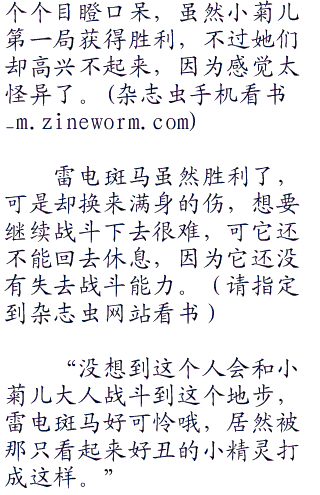 个个目瞪口呆，虽然小菊儿
第一局获得胜利，不过她们
却高兴不起来，因为感觉太
怪异了。(杂志虫手机看书
_m.zineworm.com)
雷电斑马虽然胜利了，
可是却换来满身的伤，想要
继续战斗下去很难，可它还
不能回去休息，因为它还没
有失去战斗能力。（请指定
到杂志虫网站看书）
“没想到这个人会和小
菊儿大人战斗到这个地步，
雷电斑马好可怜哦，居然被
那只看起来好丑的小精灵打
成这样。”